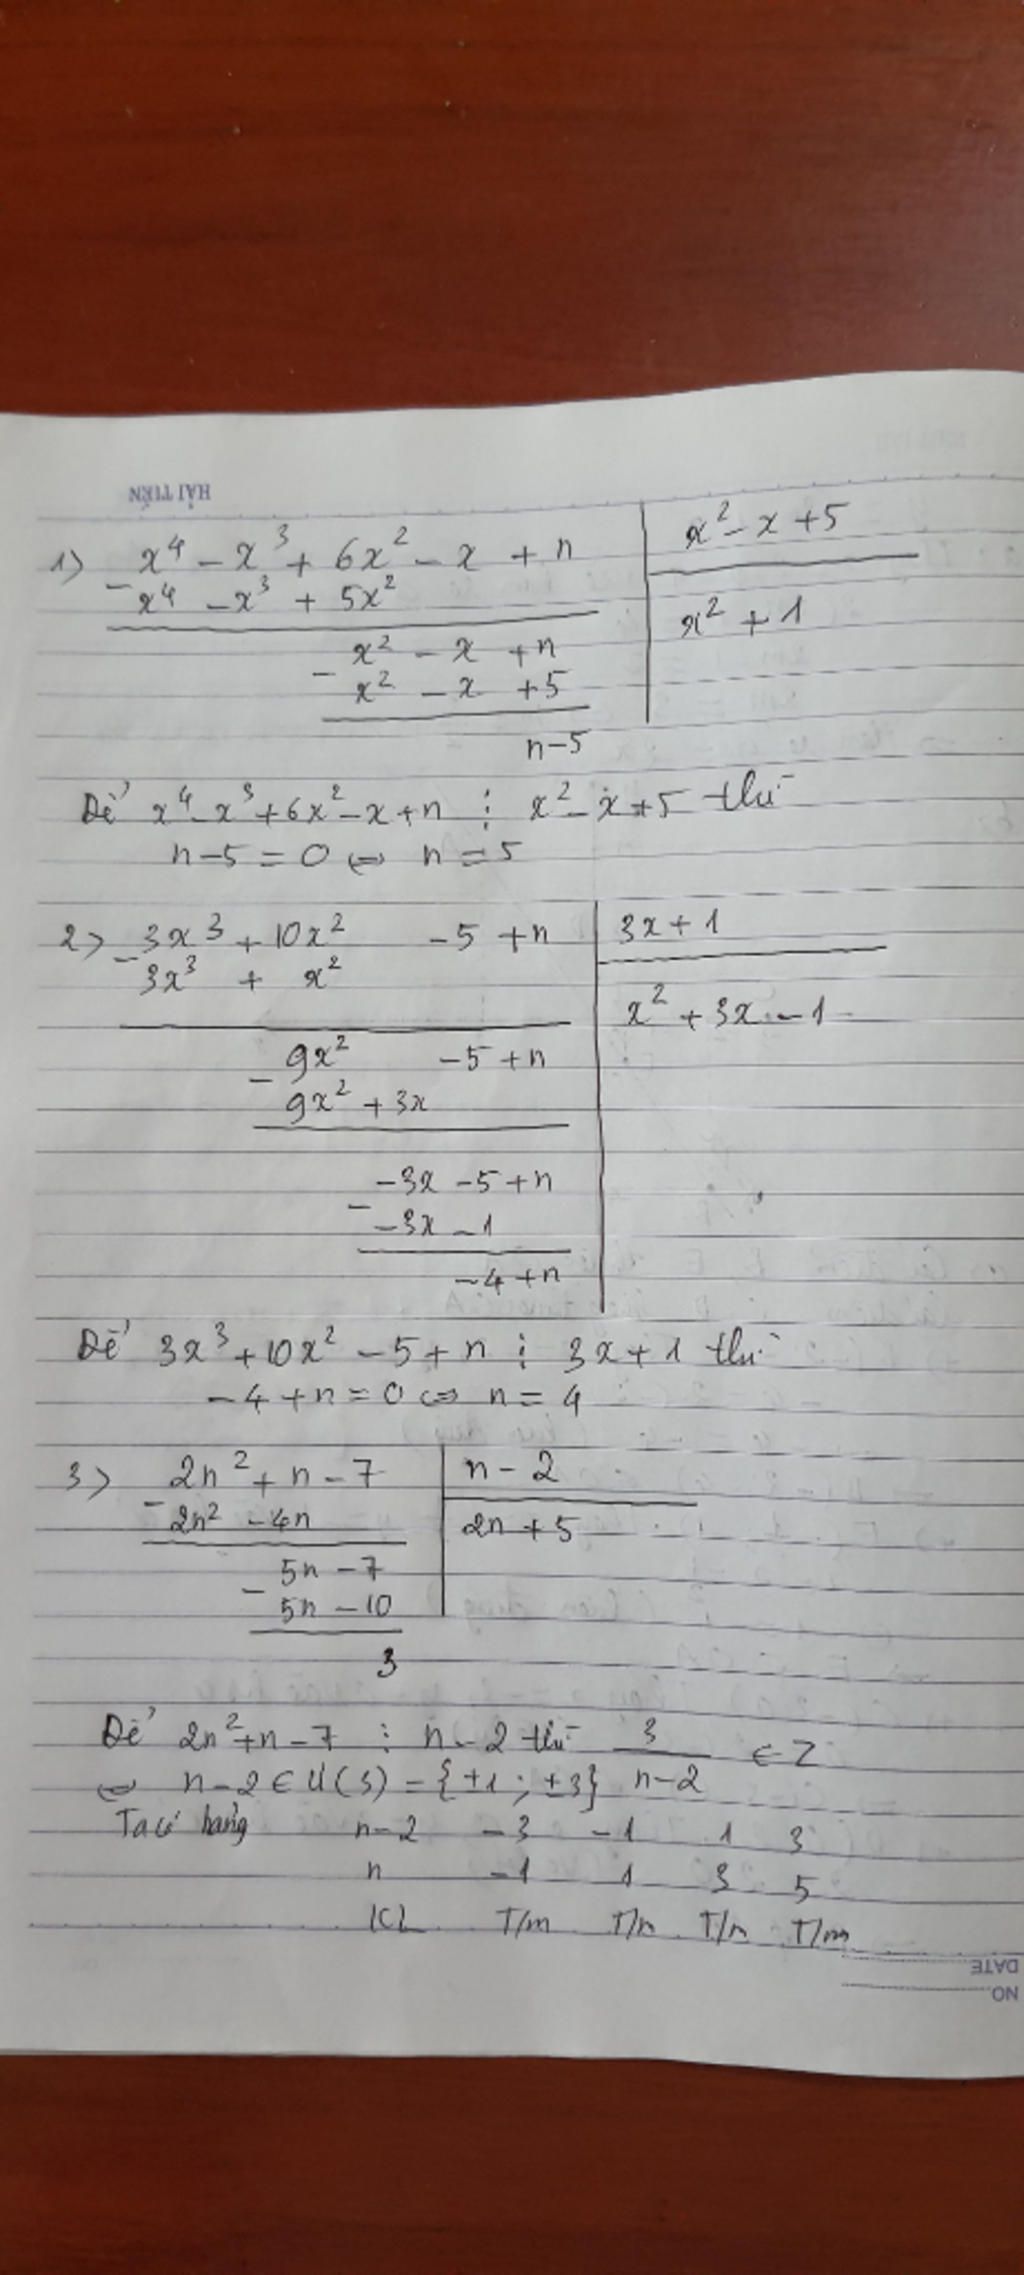 HẢI TIẾN
1) x⁴ - x³ + 6x² - x + n | x² - x + 5
- x⁴ - x³ + 5x² | x² + 1
x² - x + n
- x² - x + 5
n - 5
Để x⁴ - x³ + 6x² - x + n ⋮ x² - x + 5 thì
n - 5 = 0 ⇔ n = 5
2) 3x³ + 10x² - 5 + n | 3x + 1
- 3x³ + x² | x² + 3x - 1
9x² - 5 + n
- 9x² + 3x
-3x - 5 + n
- -3x - 1
-4 + n
Để 3x³ + 10x² - 5 + n ⋮ 3x + 1 thì
-4 + n = 0 ⇔ n = 4
3) 2n² + n - 7 | n - 2
- 2n² - 4n | 2n + 5
5n - 7
- 5n - 10
3
Để 2n² + n - 7 ⋮ n - 2 thì 3/(n - 2) ∈ Z
⇔ n - 2 ∈ Ư(3) = {±1; ±3}
Ta có bảng n - 2 -3 -1 1 3
n -1 1 3 5
KL T/m T/m T/m T/m
DATE
NO